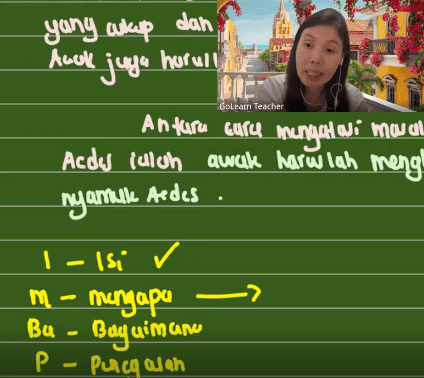 yang cukup dan
Awak juga harusl
GoLearn Teacher
Antara cara mengatasi masal
Aedes ialah awak harwlah meng
nyamuk Aedes.
I - Isi ✓
M - mengapa →
Ba - Bagaimana
P - Pencegahan